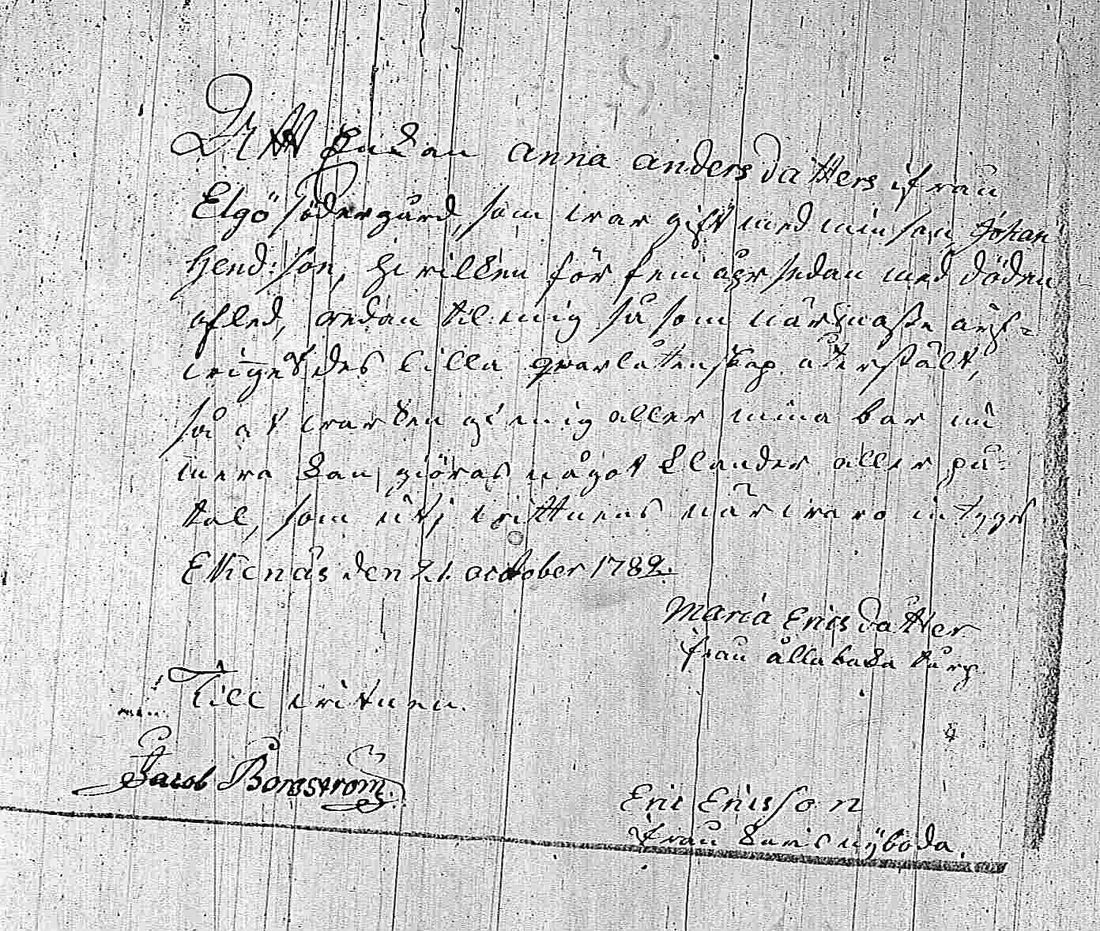 Att Enkan Anna Anders Datters ifrån
Elgö Södergård, som war gift med min son Johan
Hend:son, hwilken för fem åhr sedan med döden
afled, redan til mig så som närmaste arf-
winge des lilla qwarlåtenskap återstält,
så at warken af mig aller mina barn nu
mera kan giöras något klander aller på-
tal, som uti wittnens närwaro intyges
Ekenäs den 21. october 1782.
Maria Erics Datter
från ålla baka tårp
Till witnen.
Jacob Borgström
Eric Ericsson
från Karis Nÿboda.